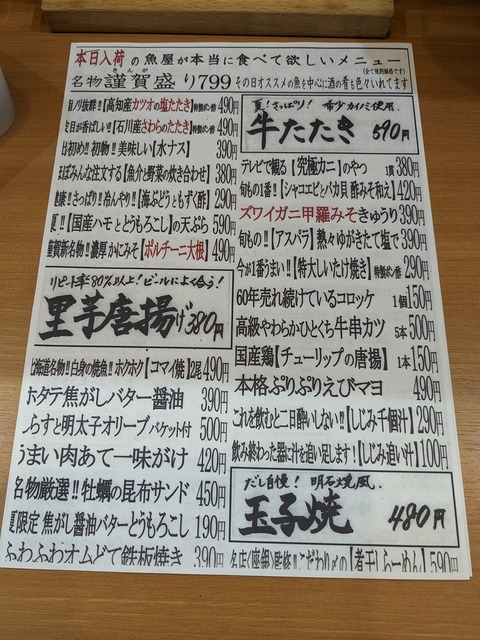 本日入荷の魚屋が本当に食べて欲しいメニュー
(全て税別価格です)
きんが
名物 謹賀盛り799 その日オススメの魚を中心に酒の肴も色々いれてます
旨ノリ抜群!!【高知産カツオの塩たたき】特製ポン酢 490円
皮目が香ばしい!!【石川産さわらのたたき】特製ポン酢 490円
出初め!!初物!!美味しい【水ナス】 390円
まぼみんな注文する【魚介と野菜の炊き合わせ】 380円
健康!!さっぱり!!冷んやり!!【海ぶどうともずく酢】 290円
夏!!【国産ハモととうもろこし】の天ぷら 590円
謹賀新名物!!濃厚かにみそ【ポルチーニ大根】 490円
リピート率80%以上!ビールによく合う!
里芋唐揚げ 380円
北海道名物!!白身の焼魚!!ホクホク【コマイ焼】2尾 490円
ホタテ焦がしバター醤油 390円
しらすと明太子オリーブ バケット付 500円
うまい肉あて一味がけ 420円
名物厳選!!牡蠣の昆布サンド 450円
夏限定 焦がし醤油バターとうもろこし 190円
ふわふわオムどて鉄板焼き 390円
夏!さっぱり!希少カイミ使用.
牛たたき 590円
テレビで観る【究極カニ】のやつ 1貫 380円
旬もの1番!!【シャコエビとバカ貝 酢みそ和え】 420円
ズワイガニ甲羅みそきゅうり 390円
旬もの!!【アスパラ】熱々ゆがきたて塩で 390円
今が1番うまい!!【特大しいたけ焼き】特製ポン酢 290円
60年売れ続けているコロッケ 1個 150円
高級やわらかひとくち牛串カツ 5本 500円
国産鶏【チューリップの唐揚】 1本 150円
本格ぷりぷりえびマヨ 490円
これを飲むと二日酔いしない!!【しじみ千個汁】 290円
飲み終わった器に汁を追い足します!【しじみ追い汁】 100円
だし自慢!明石焼風.
玉子焼 480円
名店〈座銀〉監修!!こだわり〆の【煮干しらーめん】 590円